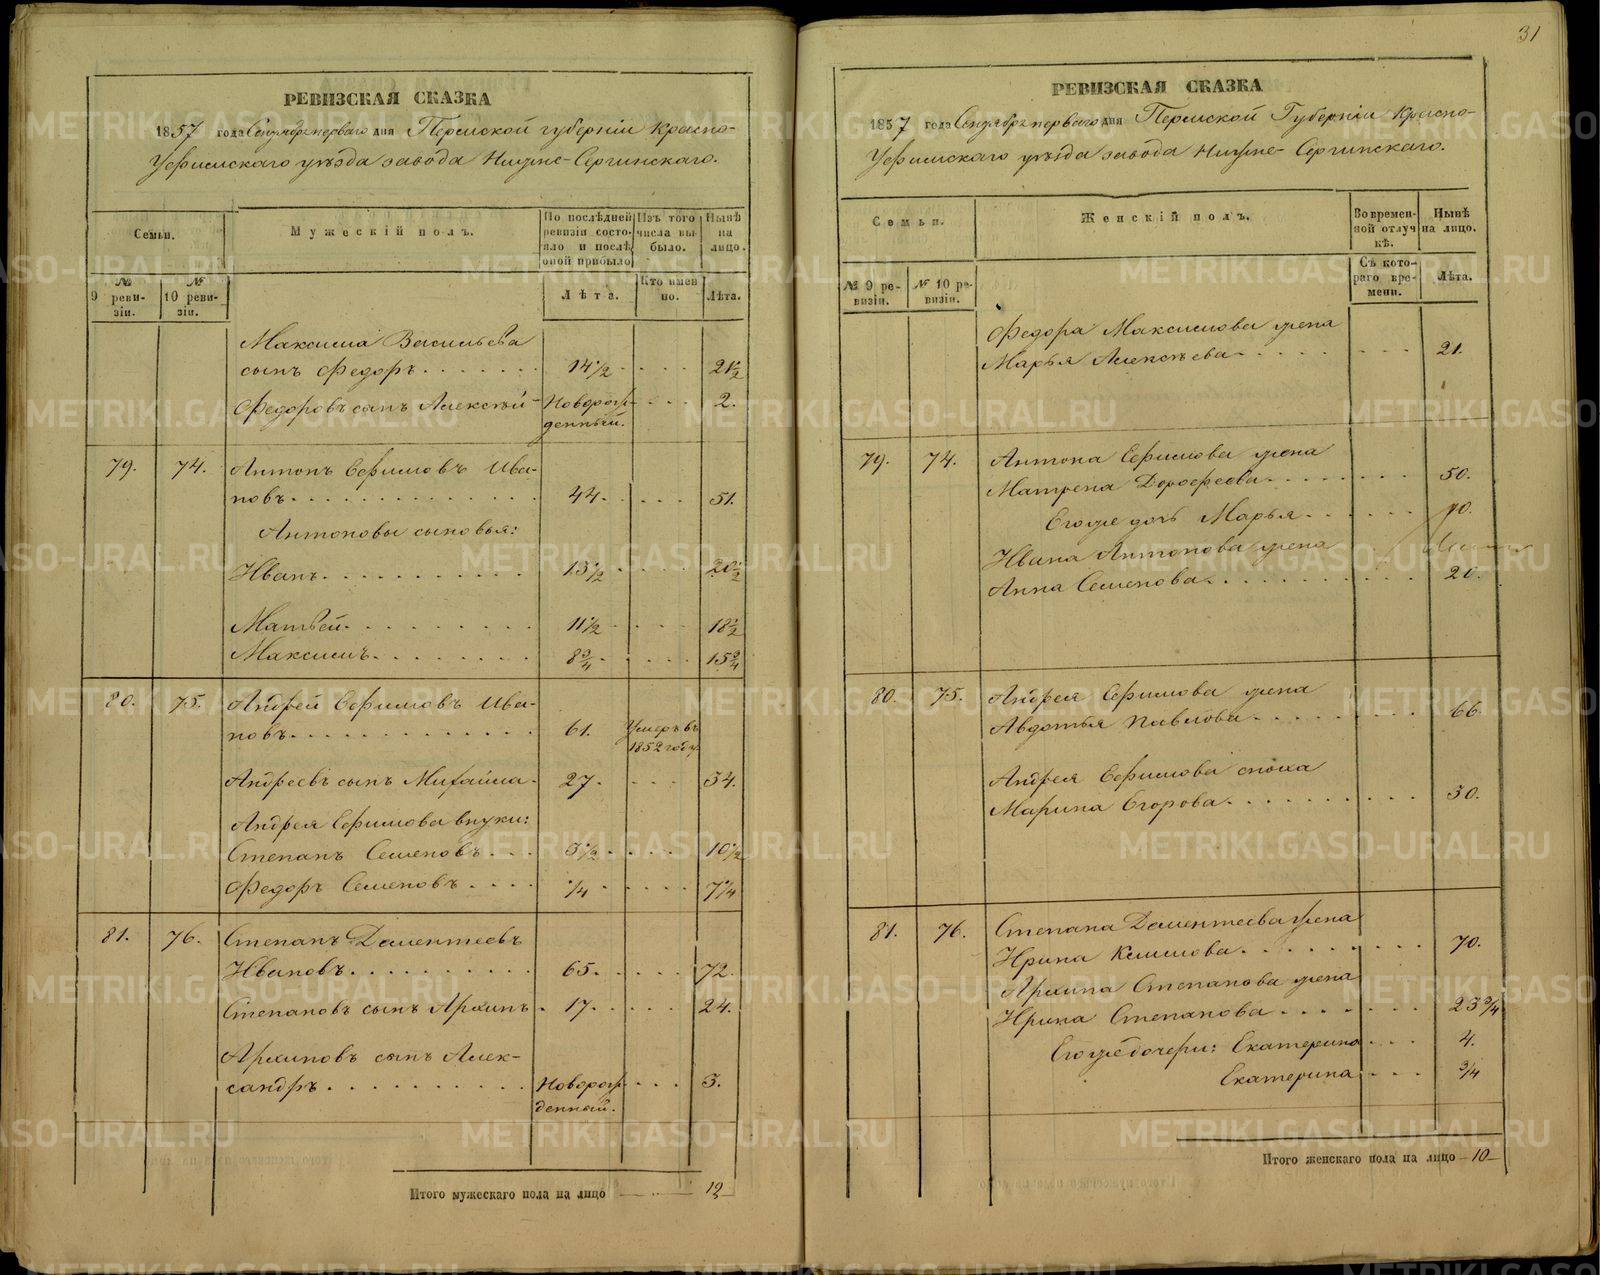 РЕВИЗСКАЯ СКАЗКА
1857 года Сентября перваго дня Пермской губерніи Красно-
Уфимскаго уѣзда завода Нижне-Сергинскаго.
Семьи.
Мужескій полъ.
По послѣдней ревизіи состояло и послѣ оной прибыло
Изъ того числа выбыло.
Нынѣ на лицо.
№ 9 ревизіи.
№ 10 ревизіи.
Лѣта.
Кто именно.
Лѣта.
Максима Васильева
сынъ Федоръ 14 1/2 21 1/2
Федоровъ сынъ Алексѣй Новорож- 2.
денный.
79. 74. Антонъ Ефимовъ Ива-
новъ 44. 51.
Антоновы сыновья:
Иванъ 13 1/2 20 1/2
Матвей 11 1/2 18 1/2
Максимъ 8 3/4 15 3/4
80. 75. Андрей Ефимовъ Ива-
новъ 61. Умеръ въ
1852 году.
Андреевъ сынъ Михайла 27. 34.
Андрея Ефимова внуки:
Степанъ Семеновъ 3 1/2 10 1/2
Федоръ Семеновъ 1/4 7 1/4
81. 76. Степанъ Даментьевъ
Ивановъ 65. 72.
Степановъ сынъ Архипъ 17. 24.
Архиповъ сынъ Алек-
сандръ Новорож- 3.
денный.
Итого мужескаго пола на лицо 12
31
РЕВИЗСКАЯ СКАЗКА
1857 года Сентября перваго дня Пермской Губерніи Красно-
Уфимскаго уѣзда завода Нижне-Сергинскаго.
Семьи.
Женскій полъ.
Во временной отлучкѣ.
Нынѣ на лицо.
№ 9 ревизіи.
№ 10 ревизіи.
Съ котораго времени.
Лѣта.
Федора Максимова жена
Марья Алексѣева 21.
79. 74. Антона Ефимова жена
Матрена Дорофеева 50.
Егоже дочь Марья 10.
Ивана Антонова жена
Анна Семенова 20.
80. 75. Андрея Ефимова жена
Авдотья Павлова 66.
Андрея Ефимова сноха
Марина Егорова 30.
81. 76. Степана Даментьева жена
Ирина Климова 70.
Архипа Степанова жена
Ирина Степанова 23 3/4
Егоже дочери: Екатерина 4.
Екатерина 3/4
Итого женскаго пола на лицо 10
METRIKI.GASO-URAL.RU